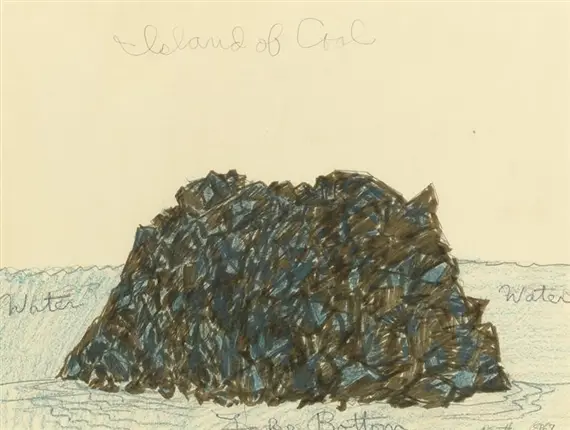 Island of Coal
Water
Water
Bottom